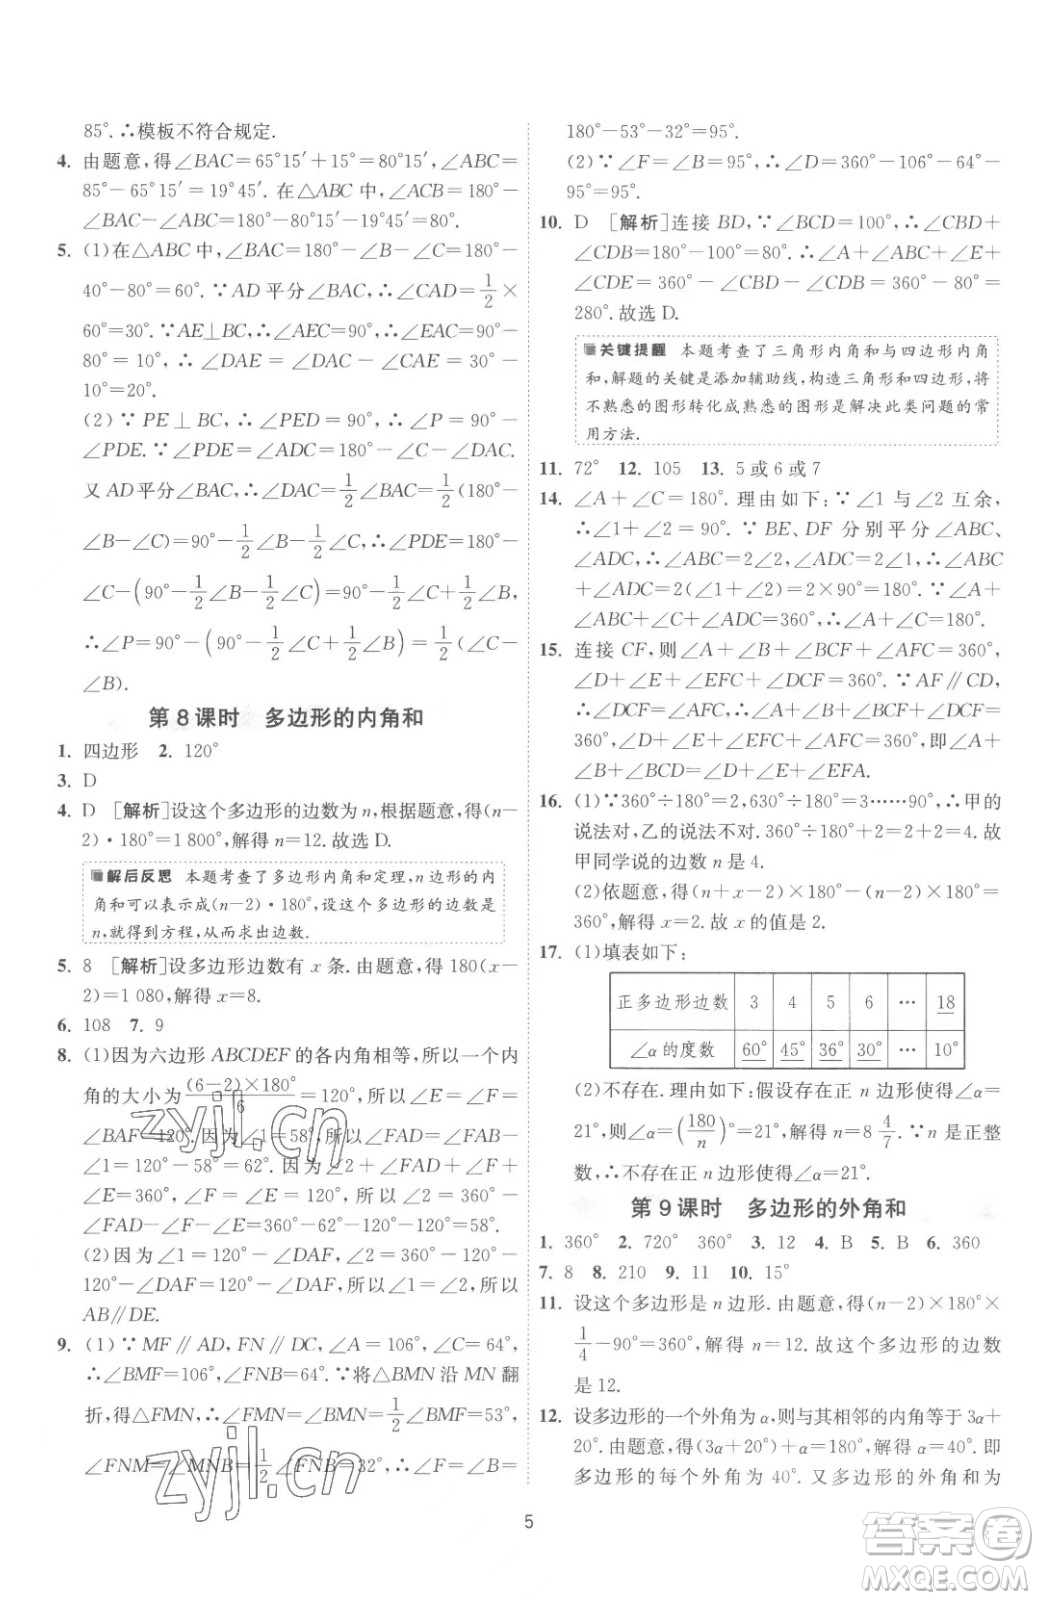 85°.∴模板不符合规定.
4. 由题意,得∠BAC=65°15′+15°=80°15′,∠ABC=
85°-65°15′=19°45′.在△ABC中,∠ACB=180°-
∠BAC-∠ABC=180°-80°15′-19°45′=80°.
5. (1)在△ABC中,∠BAC=180°-∠B-∠C=180°-
40°-80°=60°.∵AD平分∠BAC,∴∠CAD=1/2×
60°=30°.∵AE⊥BC,∴∠AEC=90°,∴∠EAC=90°-
80°=10°,∴∠DAE=∠DAC-∠CAE=30°-
10°=20°.
(2)∵PE⊥BC,∴∠PED=90°,∴∠P=90°-
∠PDE.∵∠PDE=∠ADC=180°-∠C-∠DAC.
又AD平分∠BAC,∴∠DAC=1/2∠BAC=1/2(180°-
∠B-∠C)=90°-1/2∠B-1/2∠C,∴∠PDE=180°-
∠C-(90°-1/2∠B-1/2∠C)=90°-1/2∠C+1/2∠B,
∴∠P=90°-(90°-1/2∠C+1/2∠B)=1/2(∠C-
∠B).
第8课时 多边形的内角和
1. 四边形 2. 120°
3. D
4. D [解析]设这个多边形的边数为n,根据题意,得(n-
2)·180°=1 800°,解得n=12.故选D.
解后反思 本题考查了多边形内角和定理,n边形的内
角和可以表示成(n-2)·180°,设这个多边形的边数是
n,就得到方程,从而求出边数.
5. 8 [解析]设多边形边数有x条.由题意,得180(x-
2)=1 080,解得x=8.
6. 108 7. 9
8. (1)因为六边形ABCDEF的各内角相等,所以一个内
角的大小为(6-2)×180°/6=120°,所以∠E=∠F=
∠BAF=120°.因为∠1=58°,所以∠FAD=∠FAB-
∠1=120°-58°=62°.因为∠1+∠FAD+∠F+
∠E=360°,∠F=∠E=120°,所以∠2=360°-
∠FAD-∠F-∠E=360°-62°-120°-120°=58°.
(2)因为∠1=120°-∠DAF,∠2=360°-120°-
120°-∠DAF=120°-∠DAF,所以∠1=∠2,所以
AB∥DE.
9. (1)∵MF∥AD,FN∥DC,∠A=106°,∠C=64°,
∴∠BMF=106°,∠FNB=64°.∵将△BMN沿MN翻
折,得△FMN,∴∠FMN=∠BMN=1/2∠BMF=53°,
∠FNM=∠MNB=1/2∠FNB=32°,∴∠F=∠B=
180°-53°-32°=95°.
(2)∵∠F=∠B=95°,∴∠D=360°-106°-64°-
95°=95°.
10. D [解析]连接BD,∵∠BCD=100°,∴∠CBD+
∠CDB=180°-100°=80°.∴∠A+∠ABC+∠E+
∠CDE=360°-∠CBD-∠CDB=360°-80°=
280°.故选D.
关键提醒 本题考查了三角形内角和与四边形内角
和,解题的关键是添加辅助线,构造三角形和四边形,将
不熟悉的图形转化成熟悉的图形是解决此类问题的常
用方法.
11. 72° 12. 105 13. 5或6或7
14. ∠A+∠C=180°.理由如下:∵∠1与∠2互余,
∴∠1+∠2=90°.∵BE、DF分别平分∠ABC、
∠ADC,∴∠ABC=2∠2,∠ADC=2∠1,∴∠ABC+
∠ADC=2(∠1+∠2)=2×90°=180°.∵∠A+
∠ABC+∠C+∠ADC=360°,∴∠A+∠C=180°.
15. 连接CF,则∠A+∠B+∠BCF+∠AFC=360°,
∠D+∠E+∠DCF+∠CFE=360°.∵AF∥CD,
∴∠DCF=∠AFC,∴∠A+∠B+∠BCF+∠DCF=
360°,∠D+∠E+∠AFC+∠CFE=360°,即∠A+
∠B+∠BCD=∠D+∠E+∠EFA.
16. (1)∵360°÷180°=2,630°÷180°=3……90°,∴甲的
说法对,乙的说法不对.360°÷180°+2=2+2=4.故
甲同学说的边数n是4.
(2)依题意,得(n+x-2)×180°-(n-2)×180°=
360°,解得x=2.故x的值是2.
17. (1)填表如下:
正多边形边数 3 4 5 6 … 18
∠α的度数 60° 45° 36° 30° … 10°
(2)不存在.理由如下:假设存在正n边形使得∠α=
21°,则∠α=(180/n)°=21°,解得n=8 4/7.∵n是正整
数,∴不存在正n边形使得∠α=21°.
第9课时 多边形的外角和
1. 360° 2. 720° 360° 3. 12 4. B 5. B 6. 360
7. 8 8. 210 9. 11 10. 15°
11. 设这个多边形是n边形.由题意,得(n-2)×180°×
1/4-90°=360°,解得n=12.故这个多边形的边数
是12.
12. 设多边形的一个外角为α,则与其相邻的内角等于3α+
20°.由题意,得(3α+20°)+α=180°,解得α=40°.即
多边形的每个外角为40°.又多边形的外角和为
5
zyjl.cn
zyjl.cn
答案圈
MXQE.COM